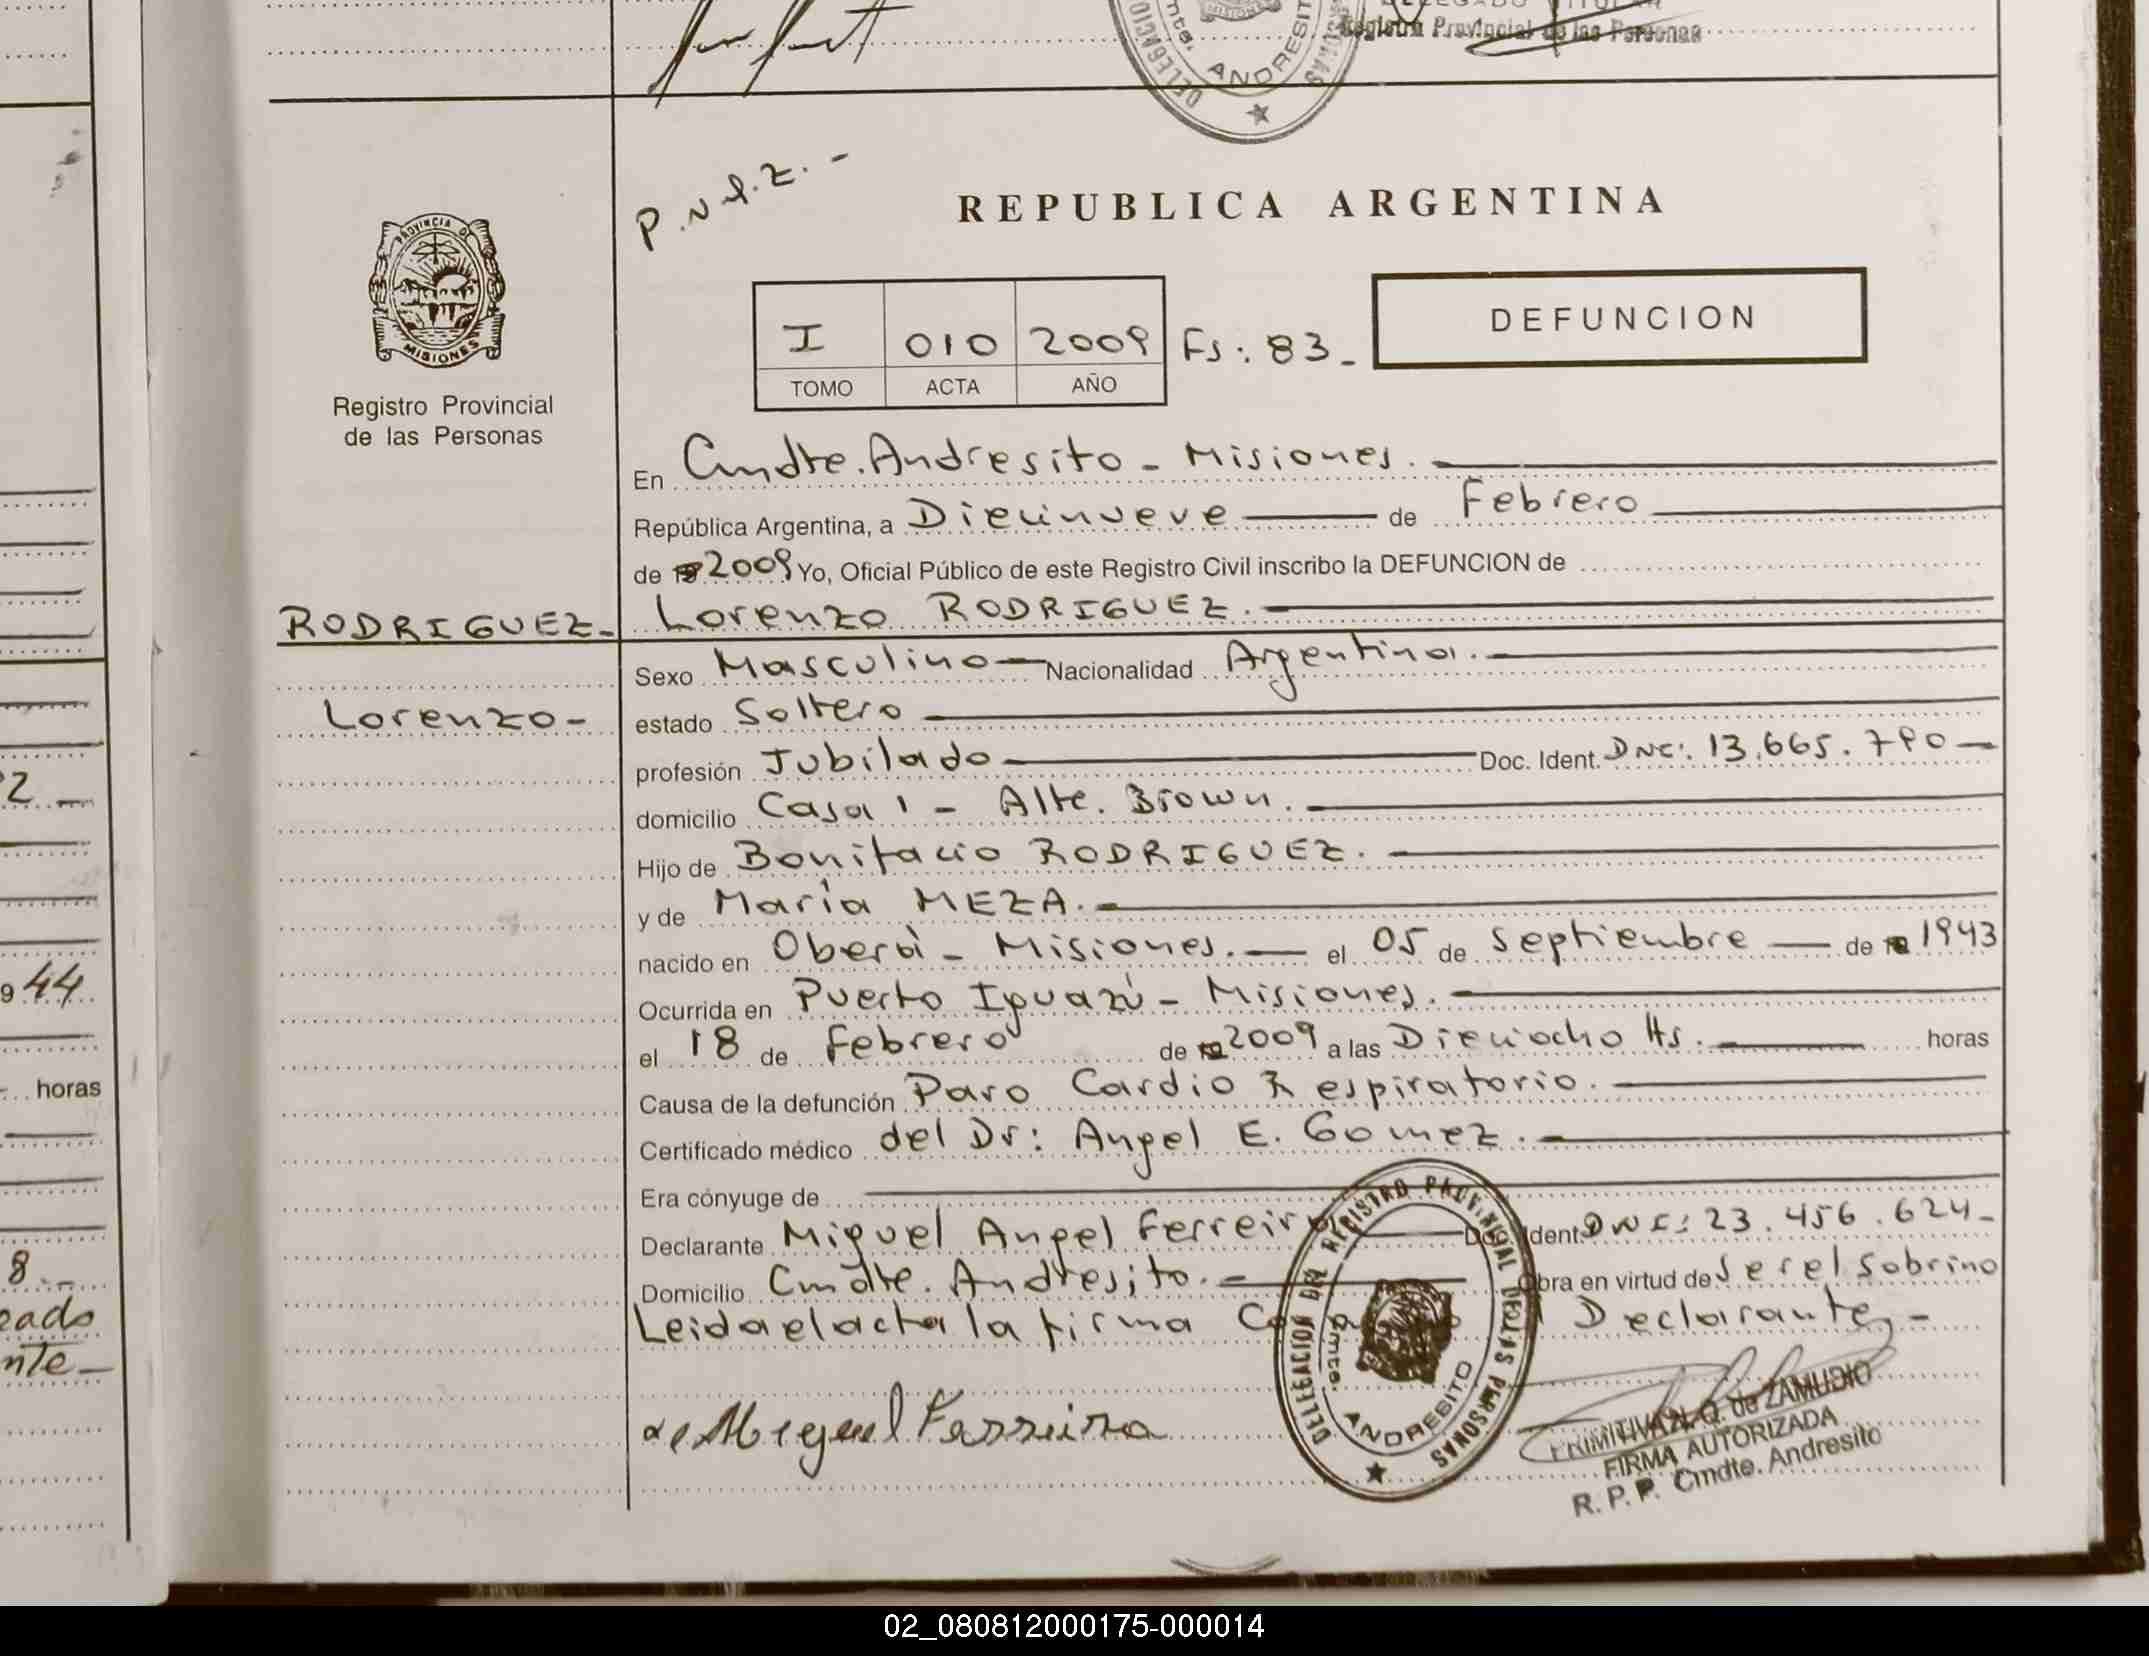 Registro Provincial de las Personas
ANDRESITO
P.
REPUBLICA ARGENTINA
PROVINCIA DE
MISIONES
Registro Provincial
de las Personas
I 010 2009 Fs: 83_
TOMO ACTA AÑO
DEFUNCION
En Cmdte. Andresito - Misiones.
República Argentina, a Diecinueve de Febrero
de 2009 Yo, Oficial Público de este Registro Civil inscribo la DEFUNCION de
RODRIGUEZ- Lorenzo RODRIGUEZ.
Sexo Masculino Nacionalidad Argentina.
Lorenzo- estado Soltero
profesión Jubilado Doc. Ident. DNI: 13.665.790
domicilio Casa 1 - Alte. Brown.
Hijo de Bonifacio RODRIGUEZ.
y de María MEZA.
nacido en Oberá - Misiones. el 05 de Septiembre de 1943
Ocurrida en Puerto Iguazú - Misiones.
el 18 de Febrero de 2009 a las Dieciocho Hs. horas
Causa de la defunción Paro Cardio Respiratorio.
Certificado médico del Dr: Angel E. Gomez.
Era cónyuge de
Declarante Miguel Angel Ferreira Doc. Ident DNI: 23.456.624-
Domicilio Cmdte. Andresito. Obra en virtud de ser el Sobrino
Leida el acta la firma Declarante,-
Miguel Ferreira
DELEGACION DEL REGISTRO PROVINCIAL DE LAS PERSONAS
Cmte. ANDRESITO
PRIMITIVA N. Q. de ZAMUDIO
FIRMA AUTORIZADA
R. P. P. Cmdte. Andresito
2
944
horas
8
nte
02_080812000175-000014